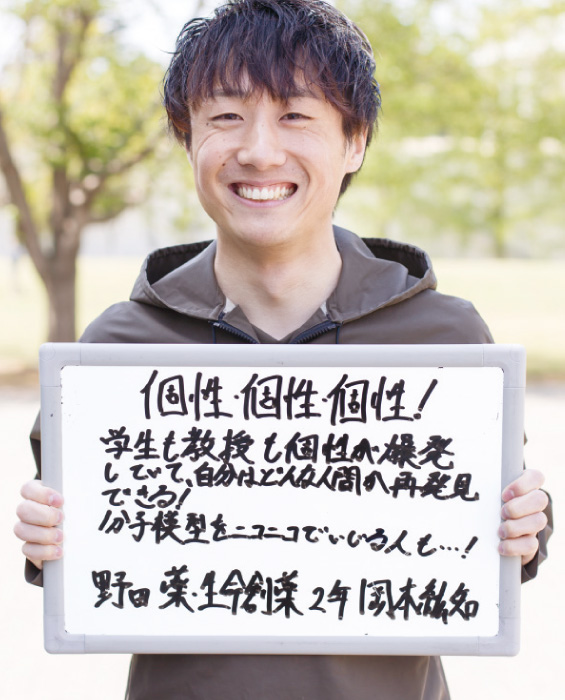 個性・個性・個性!
学生も教授も個性が爆発
していて、自分はどんな人間か再発見
できる!
分子模型をニコニコでいじる人も…!
野田 薬・生命創薬 2年 岡本紘知